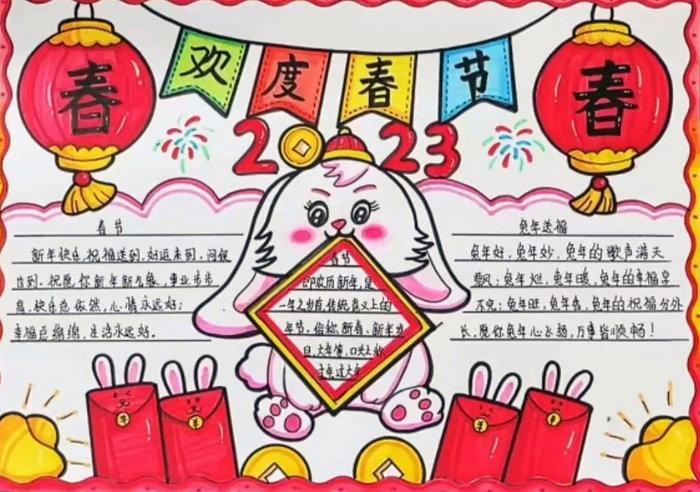 欢度春节
春
春
2023
春节
新年快乐,祝福送到,好运来到,问候
也到。祝愿你新年新气象,事业步步
高,快乐总依然,心情永远好;
幸福总绵绵,生活永远好。
春节
即农历新年,是
一年之岁首,传统意义上的
年节。俗称新春、新年、岁
旦、大年等,口头上
过年过大年
兔年送福
兔年好,兔年妙,兔年的歌声满天
飘;兔年
兔年暖,兔年的幸福享
不完;兔年旺,兔年香,兔年的祝福分外
长,愿你兔年心飞扬,万事皆顺畅!